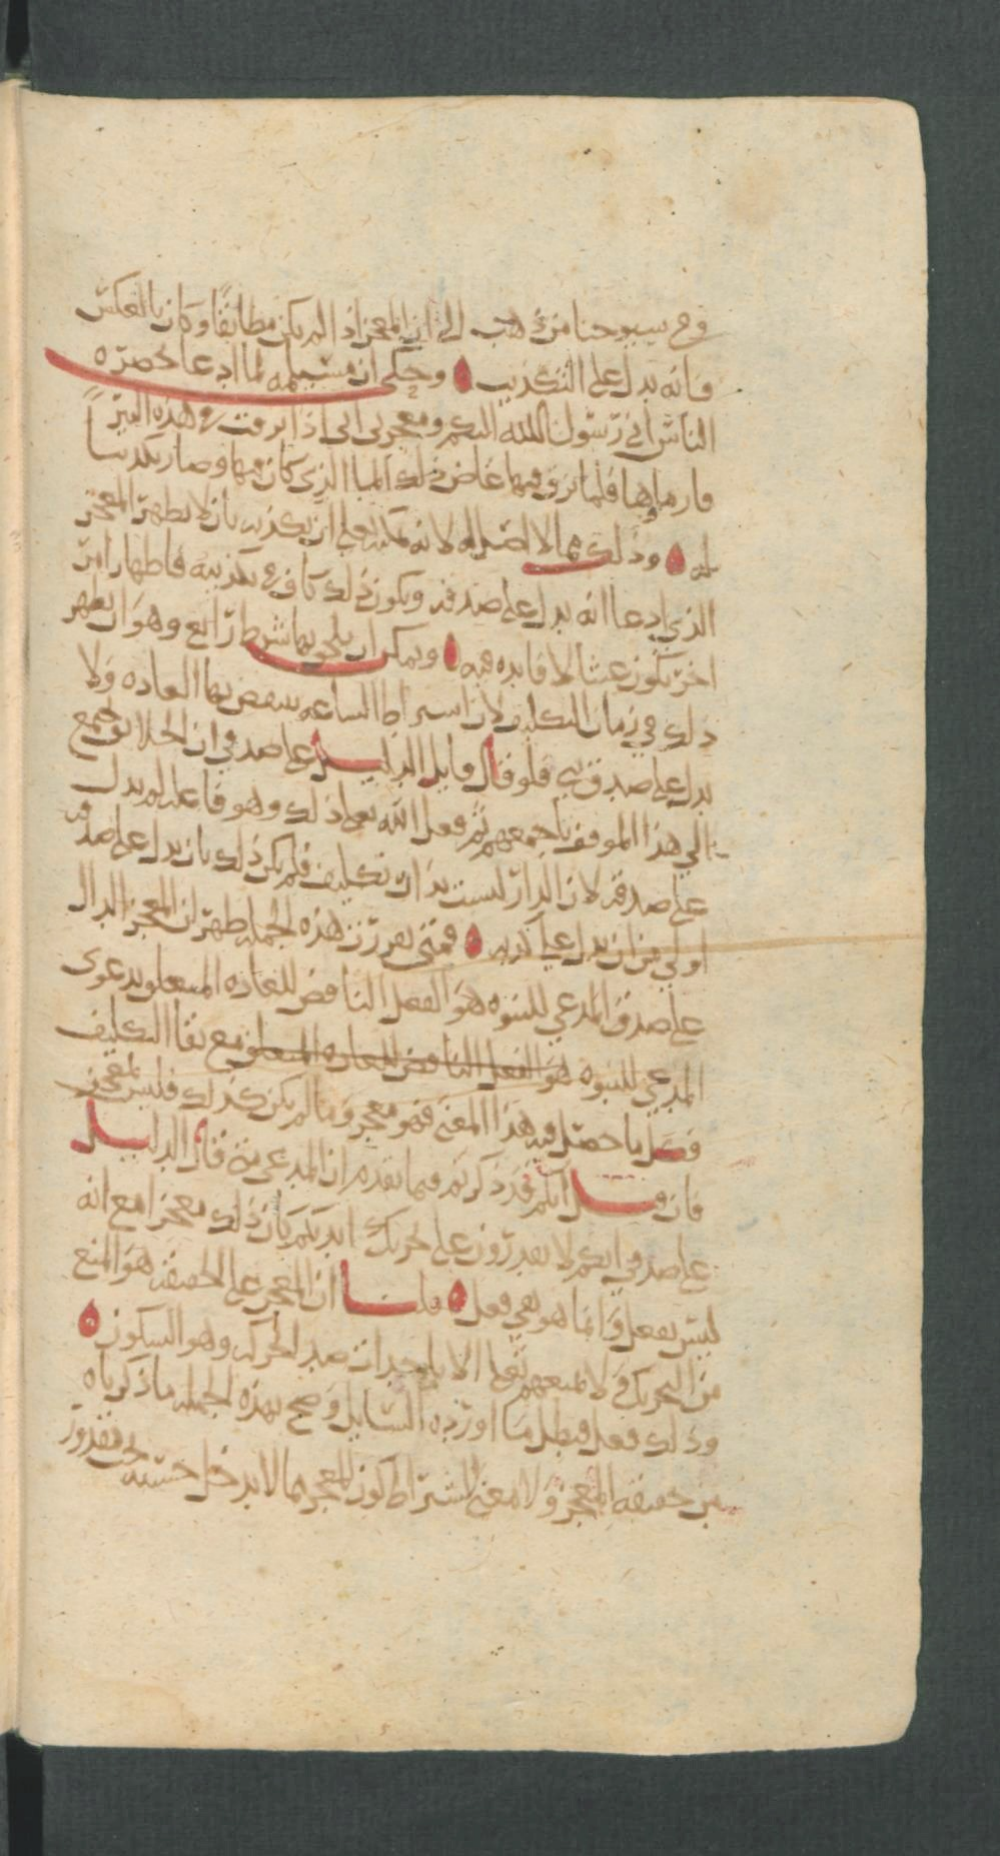 وفي شيوخنا من ذهب الى ان المعجز اذا لم يكن مطابقًا وكان بالعكس
فانه يدل على التكذيب ٥ وحكي ان مسيلمه لما ادعا بحضره
الناس اني رسول الله اليكم ومعجزتي اني اذا بزقت في هذه البير
فار ماوها فلما بزق فيها غاض ذلك الما الذي كان فيها وصار تكذيبا
له ٥ وذلك مما لا اصل له لانه يمكنه تعالى ان يكذبه بان لا يظهر المعجز
الذي ادعا انه يدل على صدقه ويكون ذلك كاف في تكذيبه فاظهار امر
اخر يكون عبثا لا فايده فيه ٥ ويمكن ان يلحق بها شرط رابع وهو ان يظهر
ذلك في زمان التكليف لان اشراط الساعه ينتقض بها العاده ولا
يدل على صدق نبي فلو قال قايل الدليل على صدقي ان الخلايق تجمع
الى هذا الموقف باجمعهم ثم فعل الله تعالى ذلك وهو فاعله لم يدل
على صدقه لان الدار ليست بدار تكليف فلم يكن ذلك بان يدل على صدقه
اولى من ان يدل على كذبه ٥ فمتى تقررت هذه الجمله ظهر ان المعجز الدال
على صدق المدعي للنبوه هو الفعل الناقض للعاده المتعلق بدعوى
المدعي للنبوه هو الفعل الناقض للعاده المتعلق مع بقا التكليف
فكل ما حصل فيه هذا المعنى فهو معجز وما لم يكن كذلك فليس بمعجز
فان قيل انكم قد ذكرتم فيما تقدم ان المدعي متى قال الدليل
على صدقي انكم لا تقدرون على تحريك ايديكم كان ذلك معجزا مع انه
ليس بفعل وانما هو نفي فعل ٥ قلنا ان المعجز على الحقيقه هو المنع
من التحريك ولا يمنعهم تعالى الا باحداث ضد الحركه وهو السكون ٥
وذلك فعل فبطل ما اورده السايل وصح بهذه الجمله ما ذكرناه
من حقيقه المعجز ولا معنى لاشتراط كون المعجز مما لا يدخل جنسه تحت مقدور